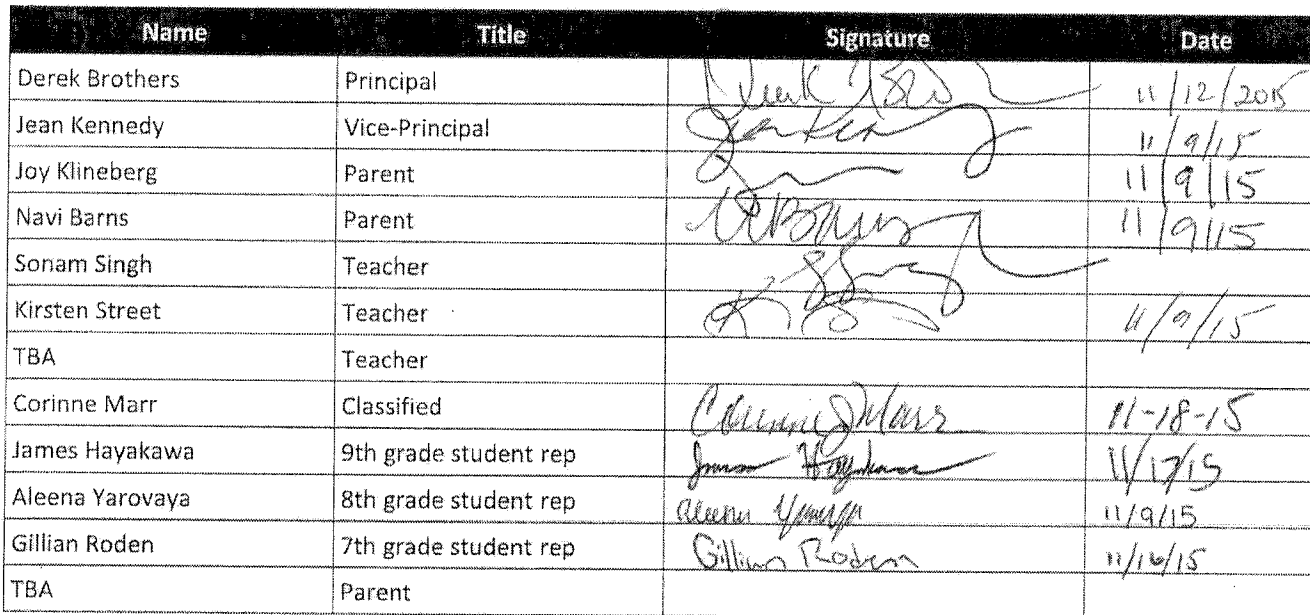 Name Title Signature Date
Derek Brothers Principal 11/12/2015
Jean Kennedy Vice-Principal 11/9/15
Joy Klineberg Parent 11/9/15
Navi Barns Parent 11/9/15
Sonam Singh Teacher
Kirsten Street Teacher 11/9/15
TBA Teacher
Corinne Marr Classified Corinne J Marr 11-18-15
James Hayakawa 9th grade student rep 11/17/15
Aleena Yarovaya 8th grade student rep Aleena 11/9/15
Gillian Roden 7th grade student rep Gillian Roden 11/16/15
TBA Parent